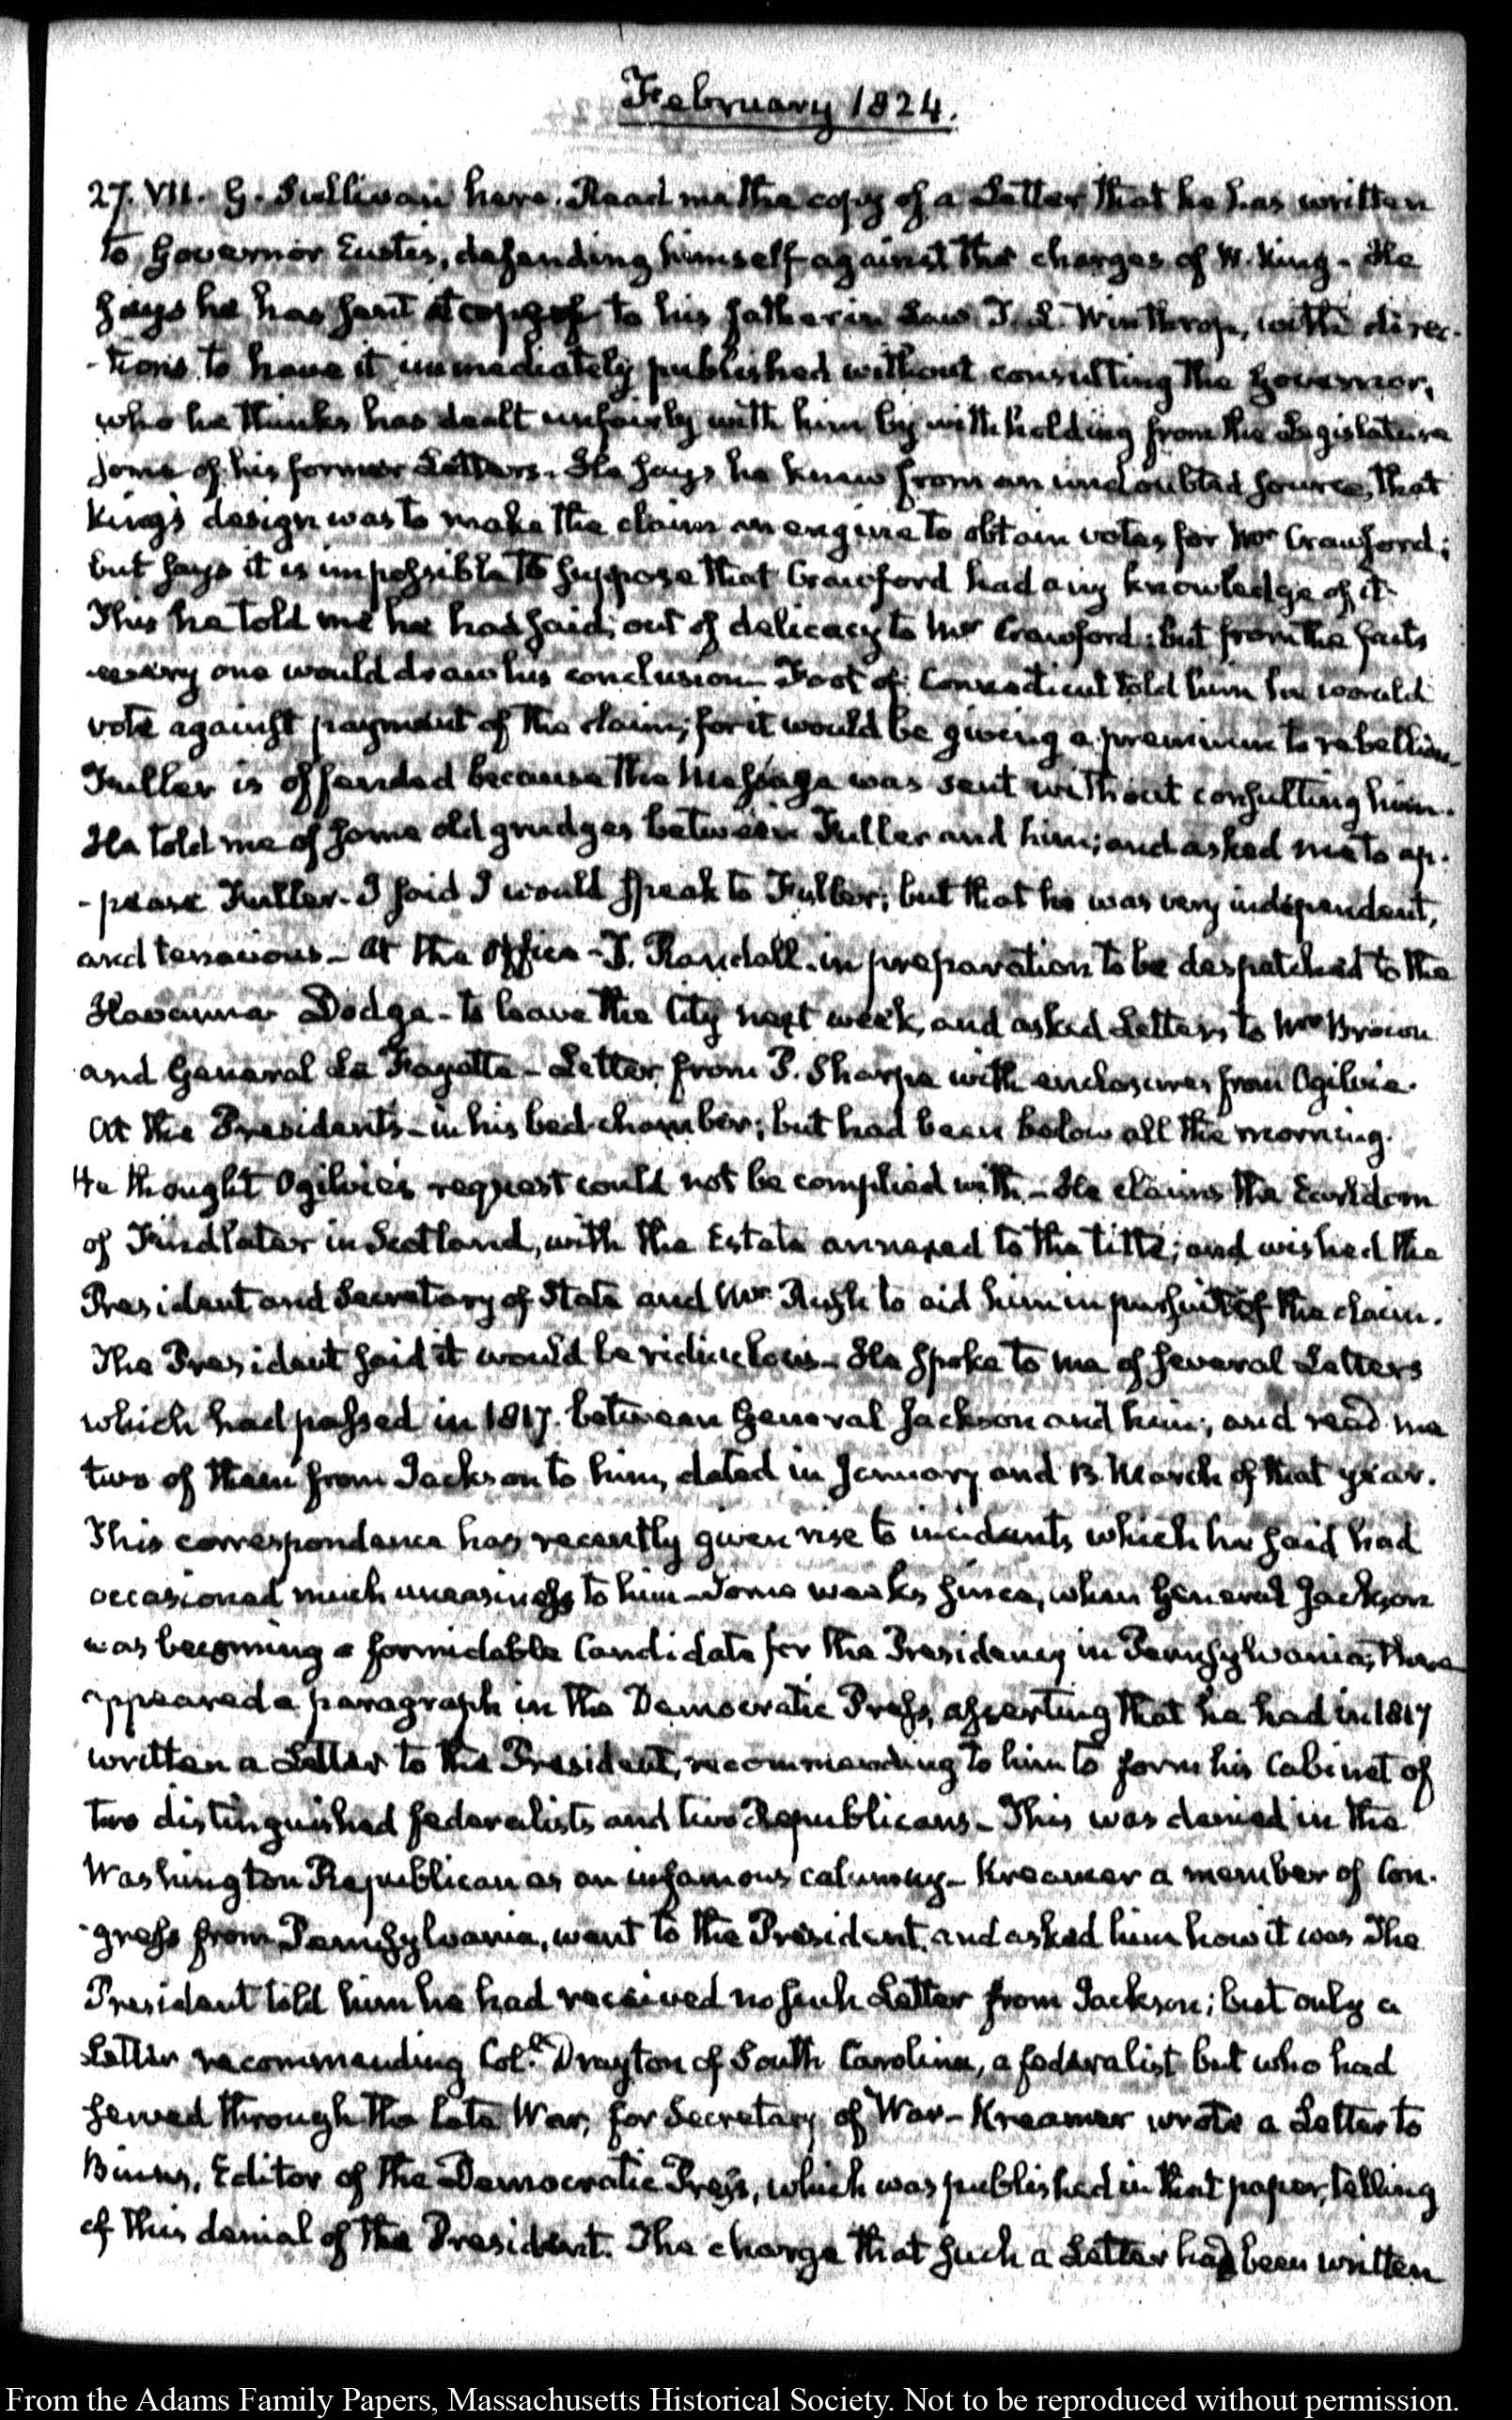 February 1824.
27. VII. G. Sullivan here. Read me the copy of a Letter that he has written
to Governor Eustis, defending himself against the charges of W. King. He
says he has sent it to his father in Law T. L. Winthrop, with direc-
-tions to have it immediately published without consulting the Governor,
who he thinks has dealt unfairly with him by withholding from the Legislature
some of his former Letters. He says he knew from an undoubted source, that
King's design was to make the claim an engine to obtain votes for Mr Crawford;
but says it is impossible to suppose that Crawford had any knowledge of it.
This he told me he had said, out of delicacy to Mr Crawford; but from the facts
every one would draw his conclusion. Foot of Connecticut told him he would
vote against payment of the claim; for it would be giving a premium to rebellion.
Fuller is offended because the Message was sent without consulting him.
He told me of some old grudges between Fuller and him; and asked me to ap-
-pease Fuller. I said I would speak to Fuller; but that he was very independent,
and tenacious. At the Office - T. Randall. in preparation to be despatched to the
Havanna Dodge - to leave the City next week, and asked Letters to Mr Brown
and General La Fayette - Letter from P. Sharpe with enclosures from Ogilvie.
At the President's - in his bed-chamber; but had been below all the morning.
He thought Ogilvie's request could not be complied with. He claims the Earldom
of Findlater in Scotland, with the Estate annexed to the title; and wished the
President and Secretary of State and Mr Rush to aid him in pursuit of the claim.
The President said it would be ridiculous. He spoke to me of several Letters
which had passed in 1817. between General Jackson and him; and read me
two of them from Jackson to him, dated in January and 13. March of that year.
This correspondence has recently given rise to incidents which he said had
occasioned much uneasiness to him. Some weeks since, when General Jackson
was becoming a formidable Candidate for the Presidency in Pennsylvania, there
appeared a paragraph in the Democratic Press, asserting that he had in 1817
written a Letter to the President, recommending to him to form his Cabinet of
two distinguished federalists and two Republicans. This was denied in the
Washington Republican as an infamous calumny. Kreamer a member of Con-
-gress from Pennsylvania, went to the President, and asked him how it was. The
President told him he had received no such Letter from Jackson; but only a
Letter recommending Coll. Drayton of South Carolina, a federalist but who had
served through the late War, for Secretary of War. Kreamer wrote a Letter to
Binns, Editor of the Democratic Press, which was published in that paper, telling
of this denial of the President. The charge that such a Letter had been written
From the Adams Family Papers, Massachusetts Historical Society. Not to be reproduced without permission.